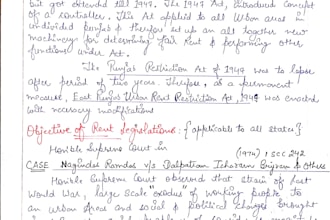 but got extended till 1947. The 1947 Act, introduced concept
of a controller. This Act applied to all Urban areas in
undivided punjab & therefore set up an all together new
machinery for determining fair Rent & performing other
functions under Act.
The Punjab Restriction Act of 1947 was to lapse
after period of two years. Therefore, as a permanent
measure, East Punjab Urban Rent Restriction Act, 1949 was enacted
with necessary modifications
Objective of Rent legislations: {applicable to all states}
Honible Supreme Court in (1974) 1 SCC 242
CASE Nagindas Ramdas v/s Dalpatram Ichharam Brijram & others
Honible Supreme Court observed that strain of first
World War, large scale exodus of working people to
an Urban areas and social & Political changes brought